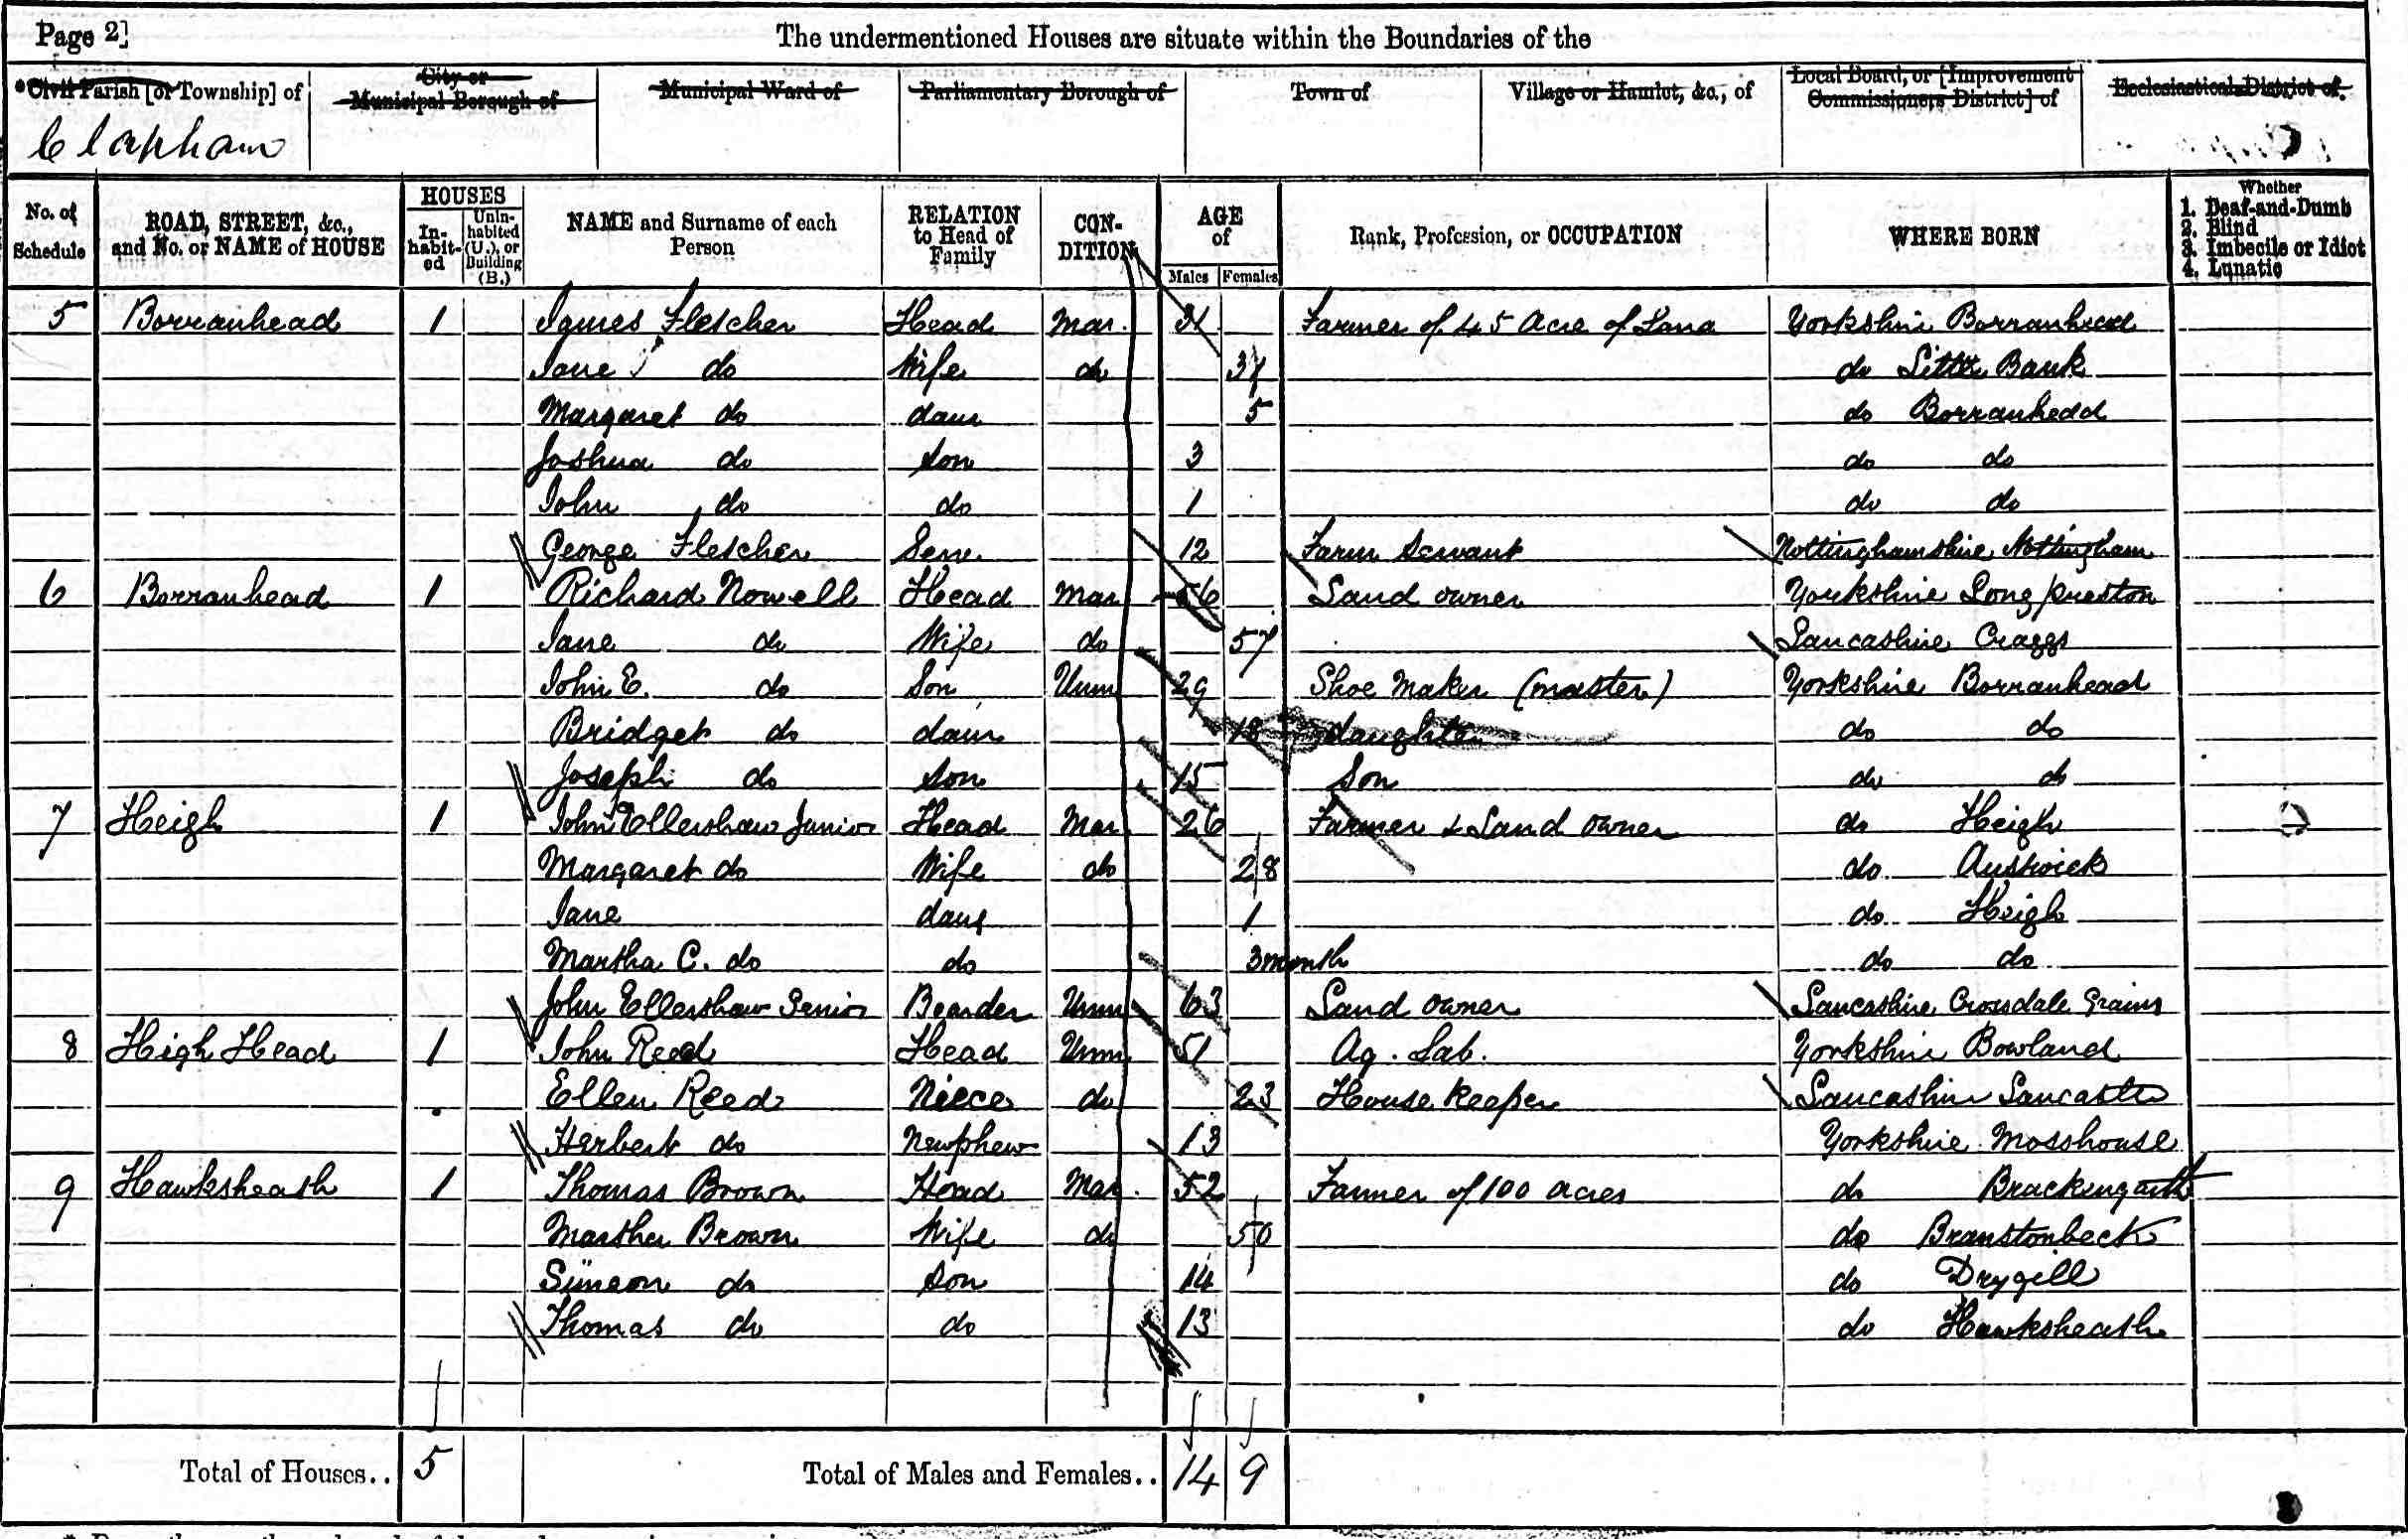 Page 2]
The undermentioned Houses are situate within the Boundaries of the
*Civil Parish [or Township] of
City or Municipal Borough of
Municipal Ward of
Parliamentary Borough of
Town of
Village or Hamlet, &c., of
Local Board, or [Improvement Commissioners District] of
Ecclesiastical District of
Clapham
No. of Schedule
ROAD, STREET, &c., and No. or NAME of HOUSE
HOUSES
Inhabited
Uninhabited (U.), or Building (B.)
NAME and Surname of each Person
RELATION to Head of Family
CONDITION
AGE of
Males
Females
Rank, Profession, or OCCUPATION
WHERE BORN
Whether
1. Deaf-and-Dumb
2. Blind
3. Imbecile or Idiot
4. Lunatic
5 Borranhead 1 James Fletcher Head Mar. 31 Farmer of 45 Acre of Land Yorkshire Borranhead
Jane do Wife do 37 do Little Bank
Margaret do daur 5 do Borranhead
Joshua do Son 3 do do
John do do 1 do do
George Fletcher Serv. 12 Farm Servant Nottinghamshire Nottingham
6 Borranhead 1 Richard Nowell Head Mar 56 Land owner Yorkshire Long preston
Jane do Wife do 57 Lancashire Craggs
John E. do Son Unm 29 Shoe Maker (master) Yorkshire Borranhead
Bridget do daur 18 daughter do do
Joseph do Son 15 Son do do
7 Heigh 1 John Ellershaw Junior Head Mar 26 Farmer & Land owner do Heigh
Margaret do Wife do 28 do Austwick
Jane daur 1 do Heigh
Martha C. do do 3 month do do
John Ellershaw Senior Boarder Unm 63 Land owner Lancashire Crossdale Grains
8 Heigh Head 1 John Reed Head Unm 51 Ag. Lab. Yorkshire Bowland
Ellen Reed Niece do 23 House Keeper Lancashire Lancaster
Herbert do Newphew 13 Yorkshire Mosshouse
9 Hawksheath 1 Thomas Brown Head Mar. 52 Farmer of 100 acres do Brackengarth
Marther Brown Wife do 50 do Branstonbeck
Simeon do Son 14 do Drygill
Thomas do do 13 do Hawksheath
Total of Houses.. 5 Total of Males and Females.. 14 9